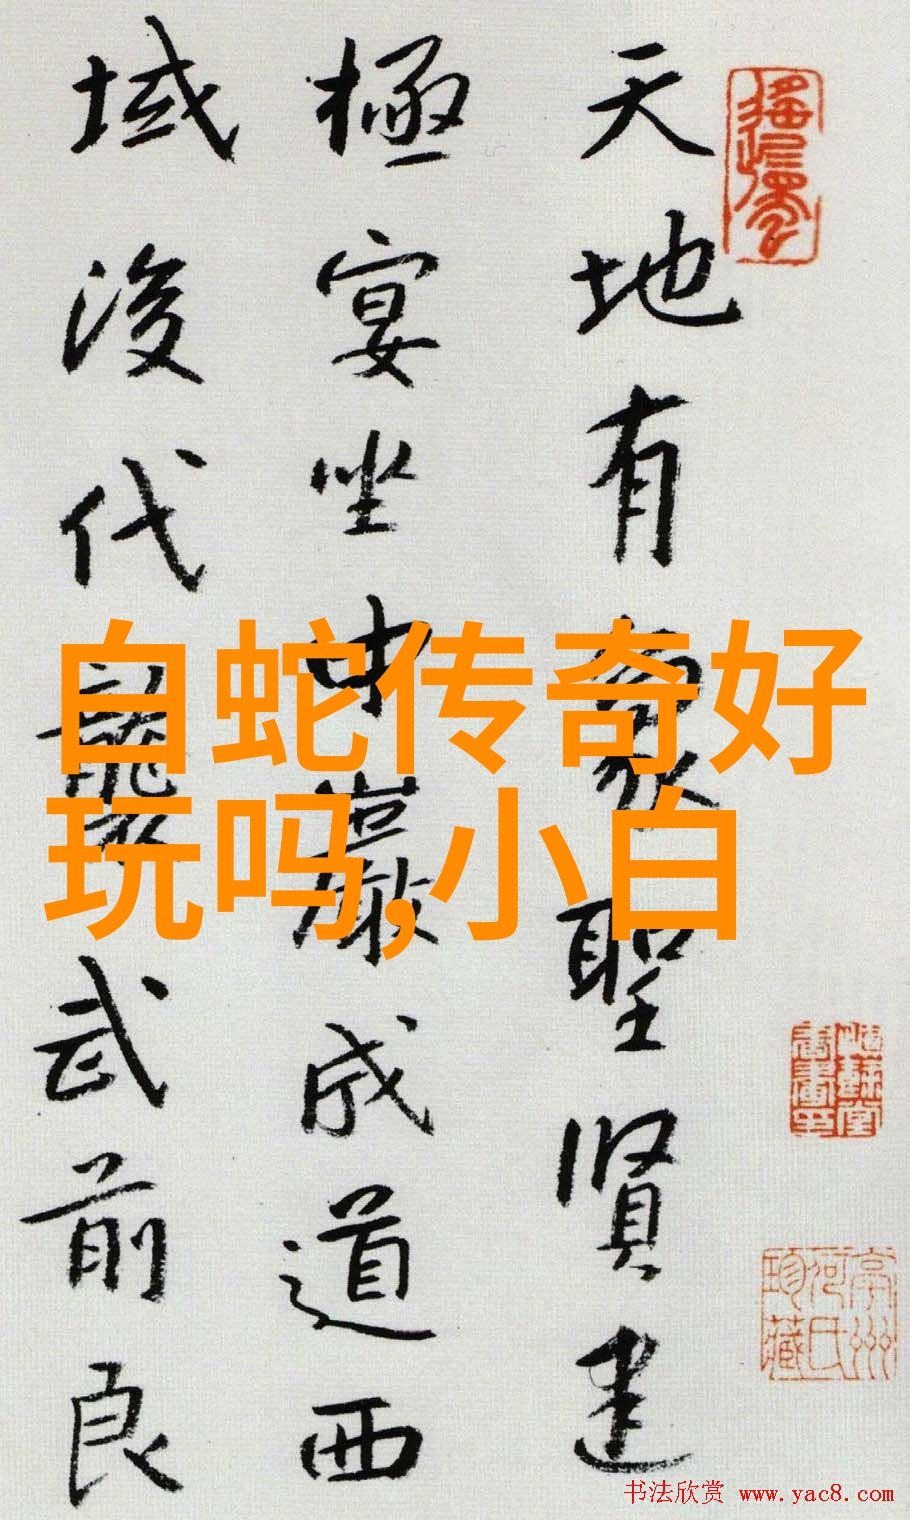 天地有象聖賢建
極宴坐中巖成道西
域後代襲武前良
自蛇传奇好
玩吗,小白
书法欣赏 www.yac8.com